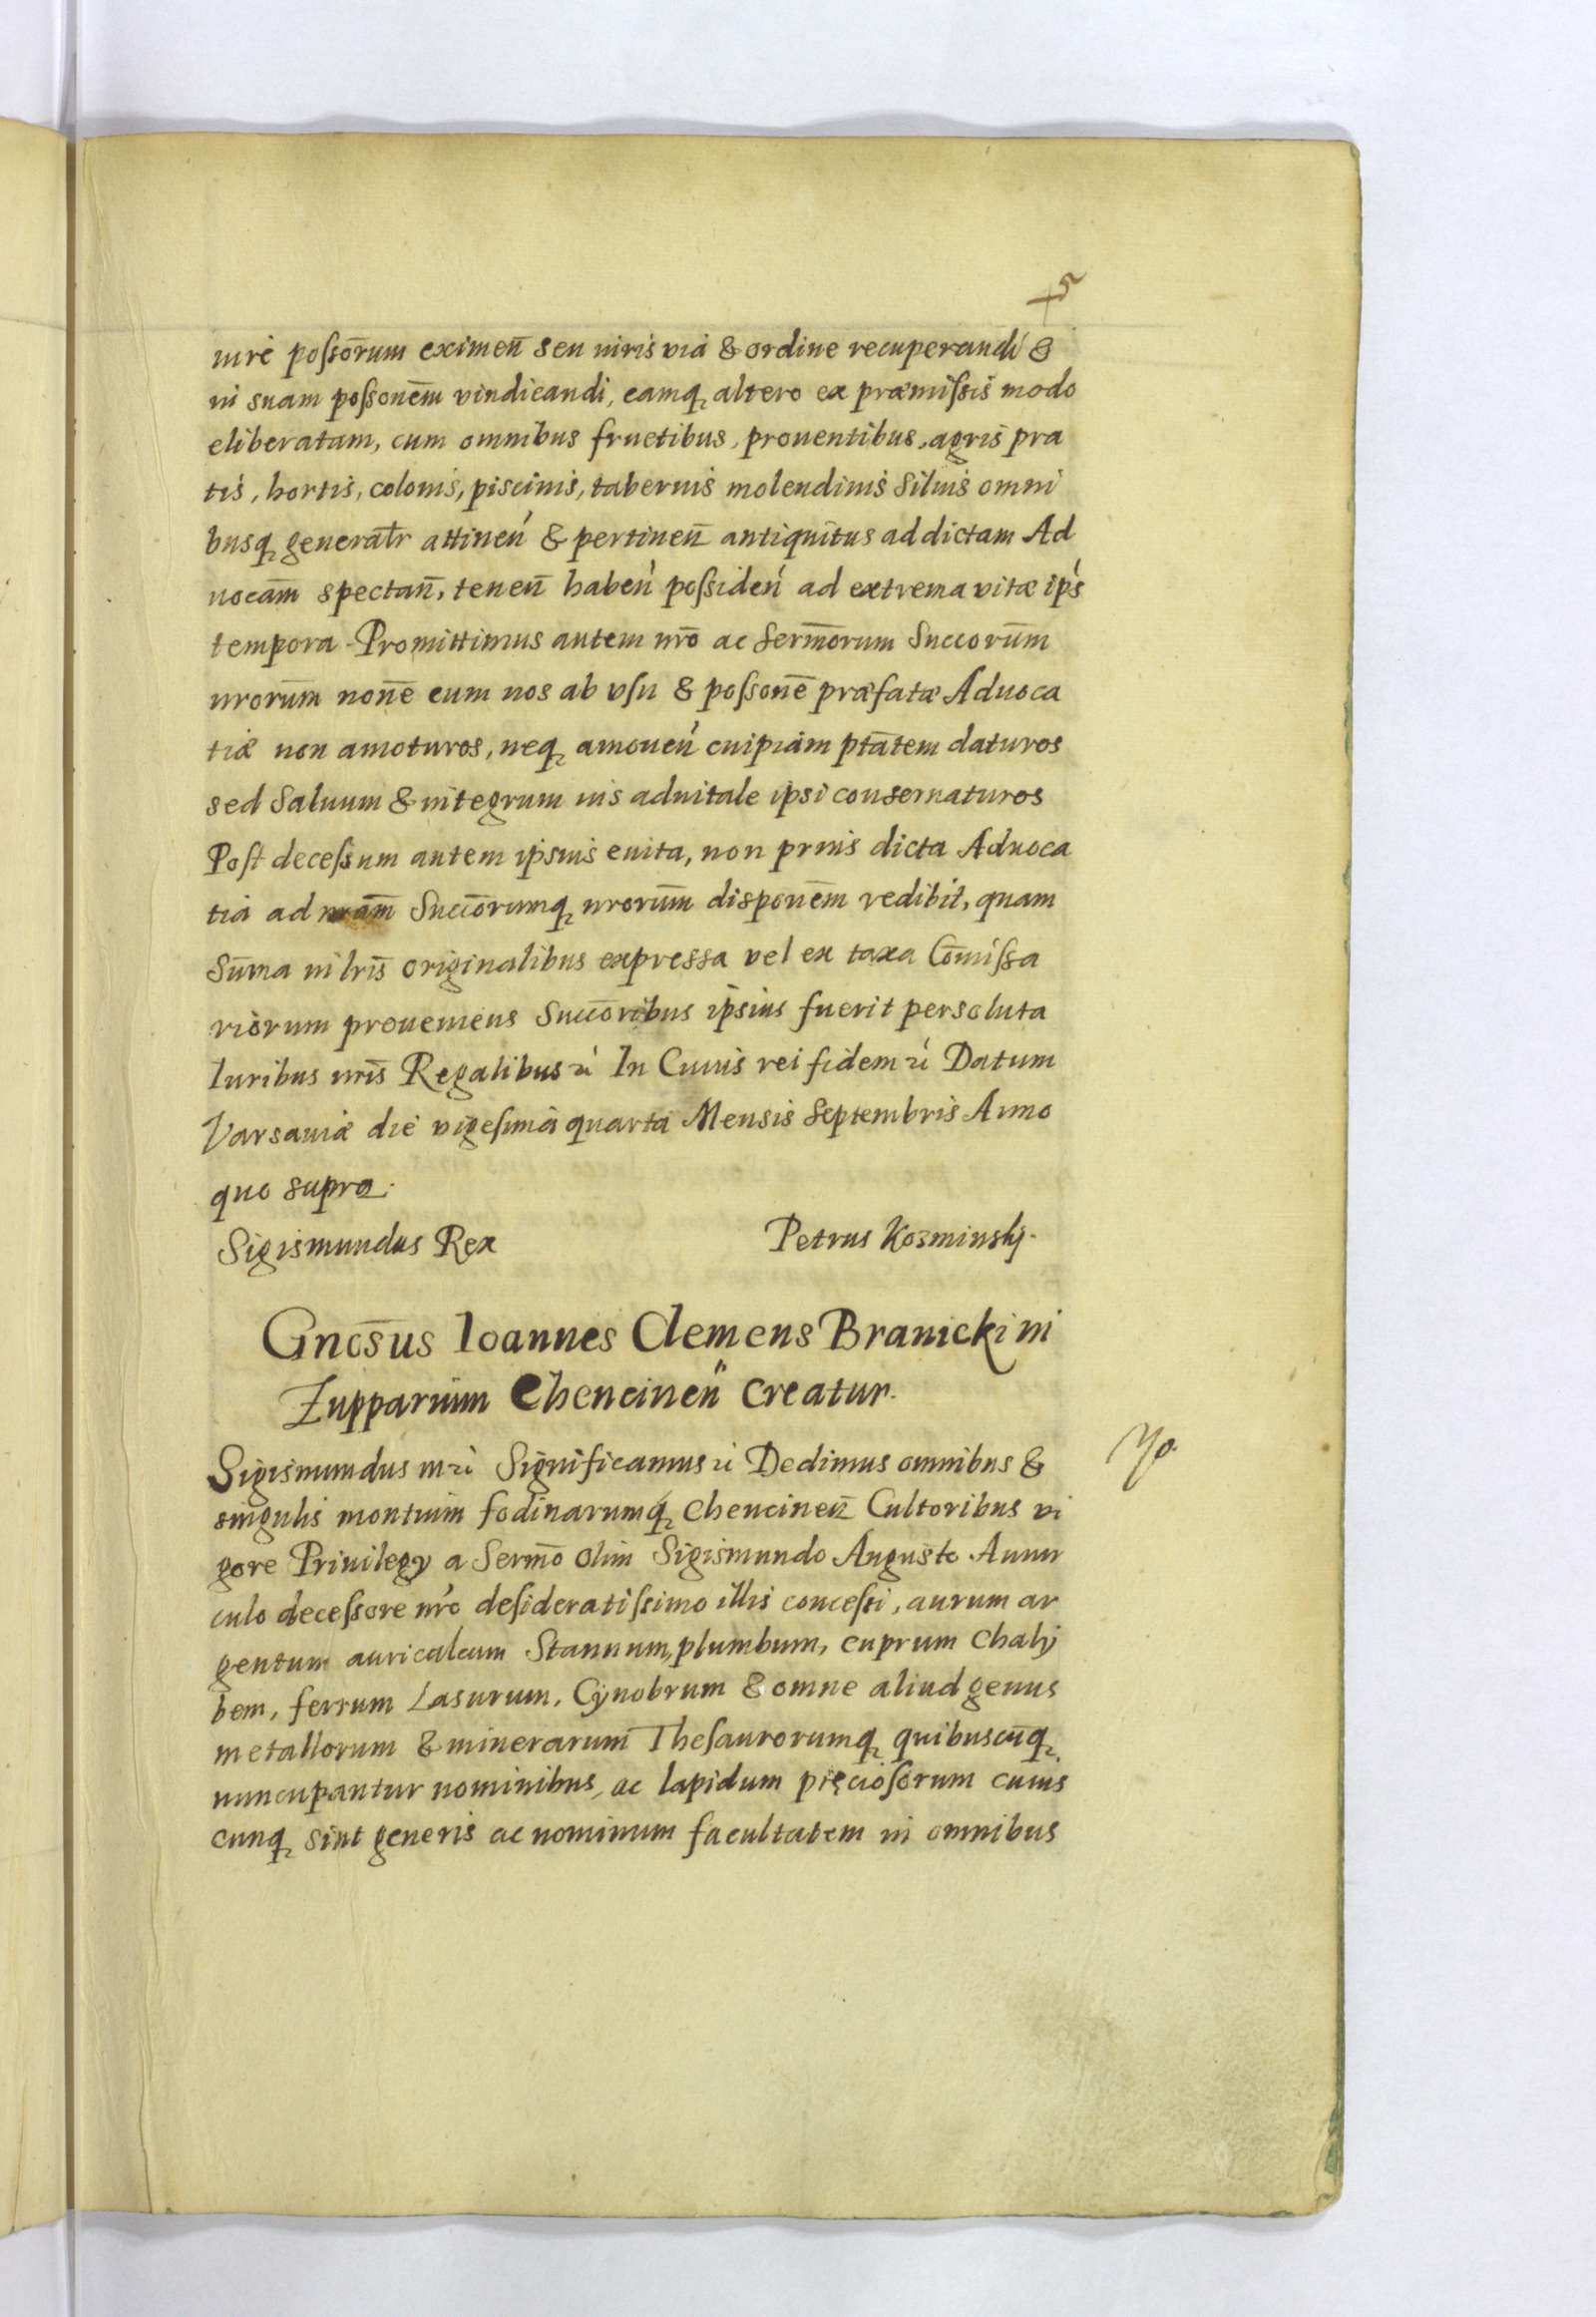 5
iure posso̅rum eximen̅ seu iuris via & ordine recuperandi &
in suam possone̅m vindicandi, eamq altero ex præmissis modo
eliberatam, cum omnibus fructibus, prouentibus, agris pra
tis, hortis, colonis, piscinis, tabernis molendinis Siluis omni
busq genera̅lr attinen̅ & pertinen̅ antiquitus ad dictam Ad
uoca̅m spectan̅, tenen̅ haben̅ possiden̅ ad extrema vitæ ip̅s
tempora. Promittimus autem nr̅o ac Serm̅orum Succoru̅m
nroru̅m no̅ne eum nos ab vsu & posson̅e præfatæ Aduoca
tiæ non amoturos, neq amouen̅ cuipiam pt̅atem daturos
sed Saluum & integrum ius aduitale ipsi conseruaturos
Post decessum autem ipsius e vita, non prius dicta Aduoca
tia ad nra̅m Succo̅rumq nroru̅m dispone̅m redibit, quam
Su̅ma in lr̅is originalibus expressa vel ex taxa Co̅missa
riorum proueniens Succo̅ribus ipsius fuerit persoluta
Iuribus nr̅is Regalibus &c In Cuius rei fidem &c Datum
Varsauiæ die vigesima quarta Mensis Septembris Anno
quo supra.
Sigismundus Rex Petrus Kozminskj.
Gnos̅us Ioannes Clemens Branicki in
Zupparium Chencinen̅ creatur.
Sigismundus III &c Significamus &c Dedimus omnibus &
singulis montium fodinarumq Chencinen̅ Cultoribus vi
gore Priuilegy a Serm̅o olim Sigismundo Augusto Auun
culo decessore nr̅o desideratissimo illis concessi, aurum ar
gentum auricalcum Stannum, plumbum, cuprum chaly
bem, ferrum Lasurum, Cynobrum & omne aliud genus
metallorum & minerarum Thesaurorumq quibuscu̅q
nuncupantur nominibus, ac lapidum pręciosorum cuius
cunq sint generis ac nominum facultatem in omnibus